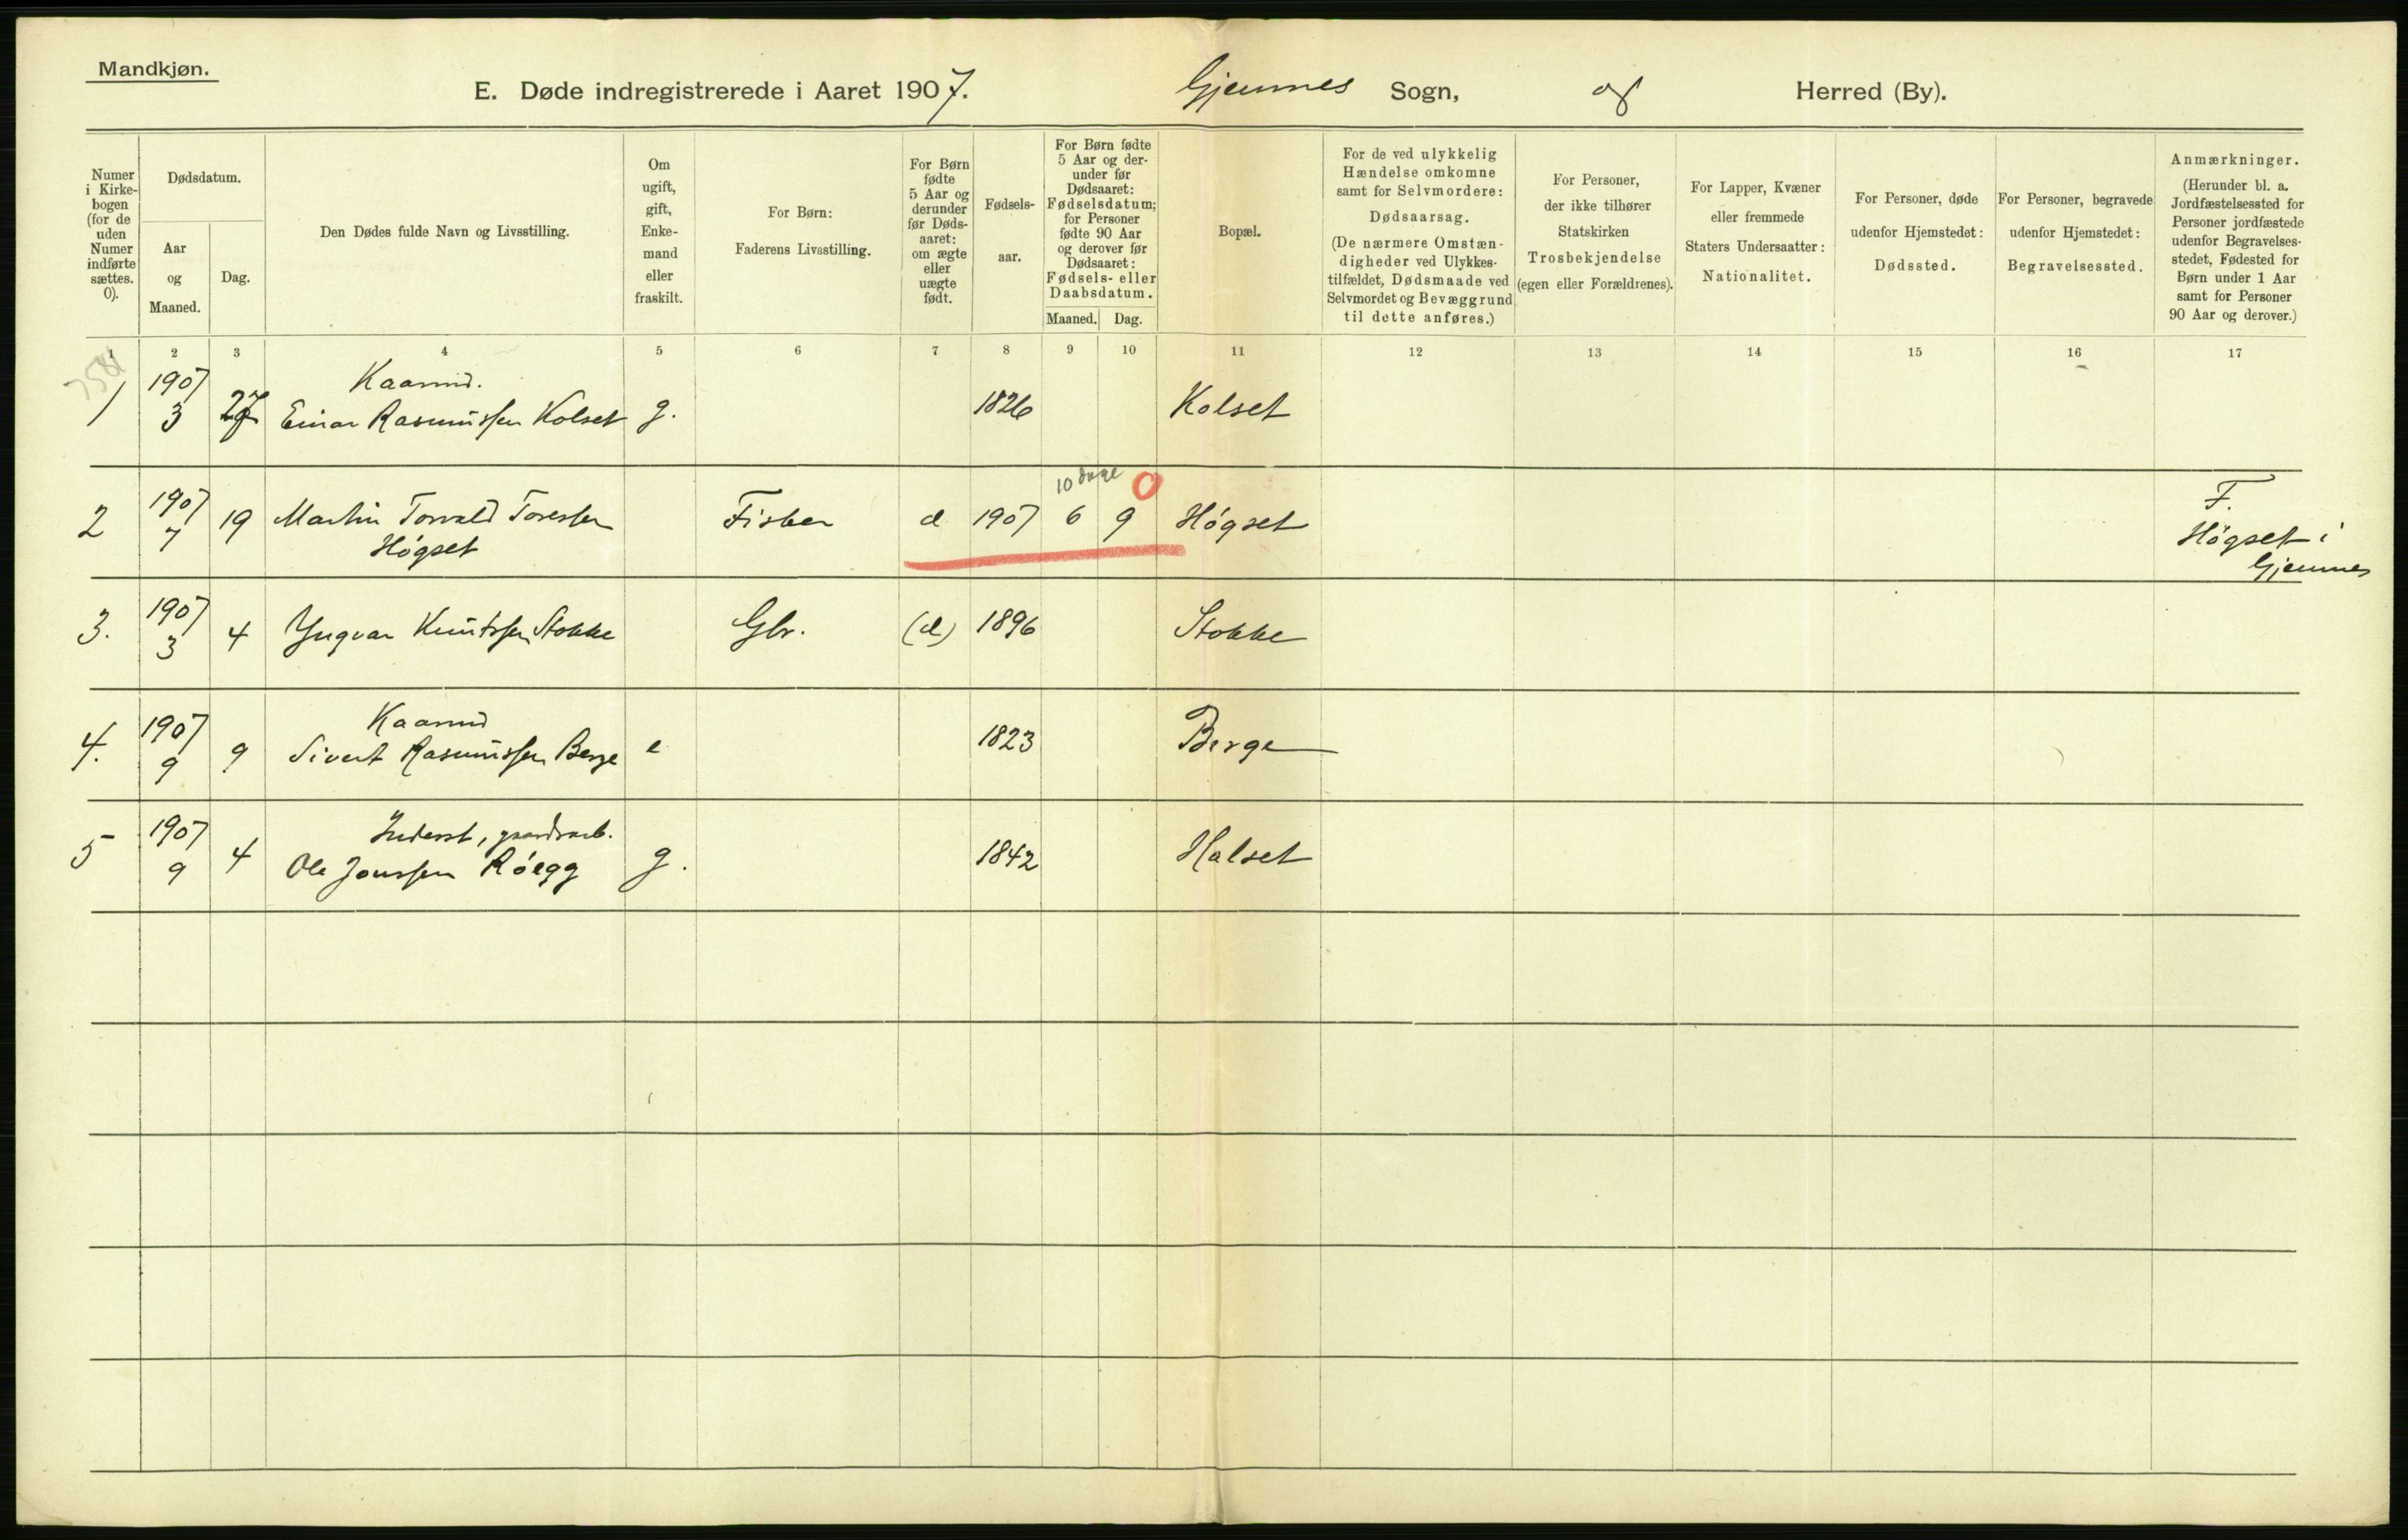 Mandkjøn.
E. Døde indregistrerede i Aaret 1907. Gjemnes Sogn, og Herred (By).
Numer i Kirkebogen (for de uden Numer indførte sættes. 0).
Dødsdatum.
Aar og Maaned.
Dag.
Den Dødes fulde Navn og Livsstilling.
Om ugift, gift, Enkemand eller fraskilt.
For Børn: Faderens Livsstilling.
For Børn fødte 5 Aar og derunder før Dødsaaret: om ægte eller uægte født.
Fødselsaar.
For Børn fødte 5 Aar og derunder før Dødsaaret: Fødselsdatum; for Personer fødte 90 Aar og derover før Dødsaaret: Fødsels- eller Daabsdatum.
Maaned. Dag.
Bopæl.
For de ved ulykkelig Hændelse omkomne samt for Selvmordere: Dødsaarsag. (De nærmere Omstændigheder ved Ulykkestilfældet, Dødsmaade ved Selvmordet og Bevæggrund til dette anføres.)
For Personer, der ikke tilhører Statskirken Trosbekjendelse (egen eller Forældrenes).
For Lapper, Kvæner eller fremmede Staters Undersaatter: Nationalitet.
For Personer, døde udenfor Hjemstedet: Dødssted.
For Personer, begravede udenfor Hjemstedet: Begravelsessted.
Anmærkninger. (Herunder bl. a. Jordfæstelsessted for Personer jordfæstede udenfor Begravelsesstedet, Fødested for Børn under 1 Aar samt for Personer 90 Aar og derover.)
1 2 3 4 5 6 7 8 9 10 11 12 13 14 15 16 17
1907 Kaarmd.
1 3 27 Einar Rasmussen Kolset g. 1826 Kolset
10 dage 0
1907 F.
2 7 19 Martin Torvald Toressen Fisker e 1907 6 9 Høgset Høgset i
Høgset Gjemnes
1907
3. 3 4 Yngvar Knutssen Stokke Gbr. (e) 1896 Stokke
1907 Kaarmd
4. 9 9 Sivert Rasmussen Berge e 1823 Berge
1907 Inderst, gaardsarb.
5 9 4 Ole Jonssen Röegg g. 1842 Halset